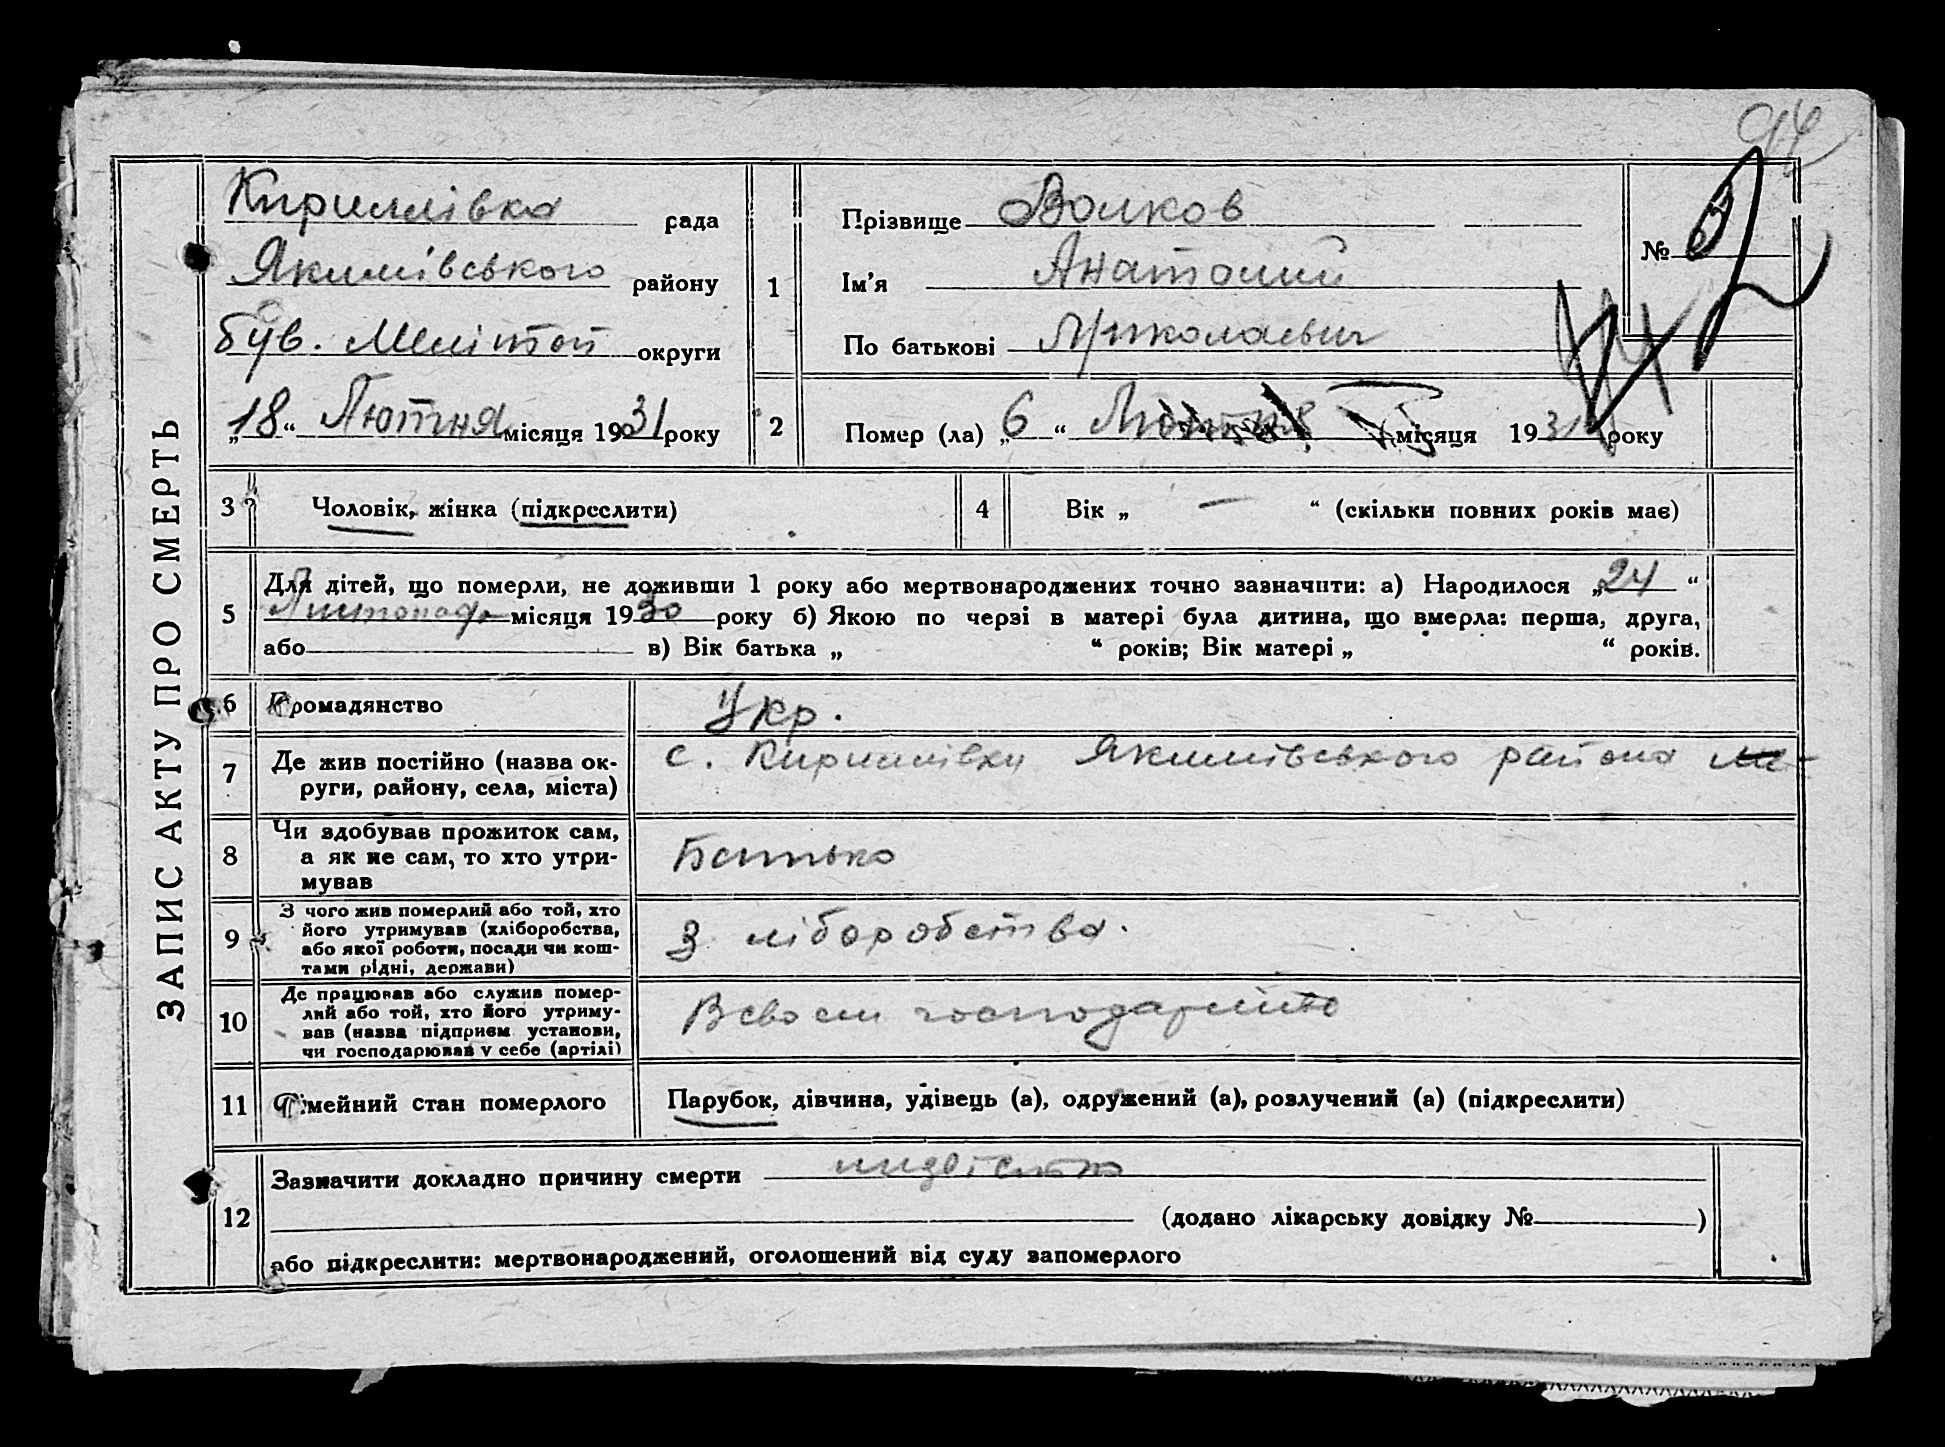 94
ЗАПИС АКТУ ПРО СМЕРТЬ
Кириллівка рада
Якимівського району
був. Меліт округи
„18“ Лютня місяця 1931 року
1
Прізвище Волков
Ім'я Анатолий
По батькові Миколаевич
№
2 Помер (ла) „6“ місяця 1931 року
3 Чоловік, жінка (підкреслити)
4 Вік „ — “ (скільки повних років має)
5 Для дітей, що померли, не доживши 1 року або мертвонароджених точно зазначити: а) Народилося „24“
Листопада місяця 1930 року б) Якою по черзі в матері була дитина, що вмерла: перша, друга,
або в) Вік батька „ “ років; Вік матері „ “ років.
6 Громадянство Укр.
7 Де жив постійно (назва ок-
руги, району, села, міста)
с. Кириллівки Якимівського района
8 Чи здобував прожиток сам,
а як не сам, то хто утри-
мував
Батько
9 З чого жив померлий або той, хто
його утримував (хліборобства,
або якої роботи, посади чи кош-
тами рідні, держави)
З ліборобства.
10 Де працював або служив помер-
лий або той, хто його утриму-
вав (назва підприєм установи,
чи господарював у себе (артілі)
В своем господарстві
11 Сімейний стан померлого Парубок, дівчина, удівець (а), одружений (а), розлучений (а) (підкреслити)
12 Зазначити докладно причину смерти
(додано лікарську довідку № )
або підкреслити: мертвонароджений, оголошений від суду запомерлого